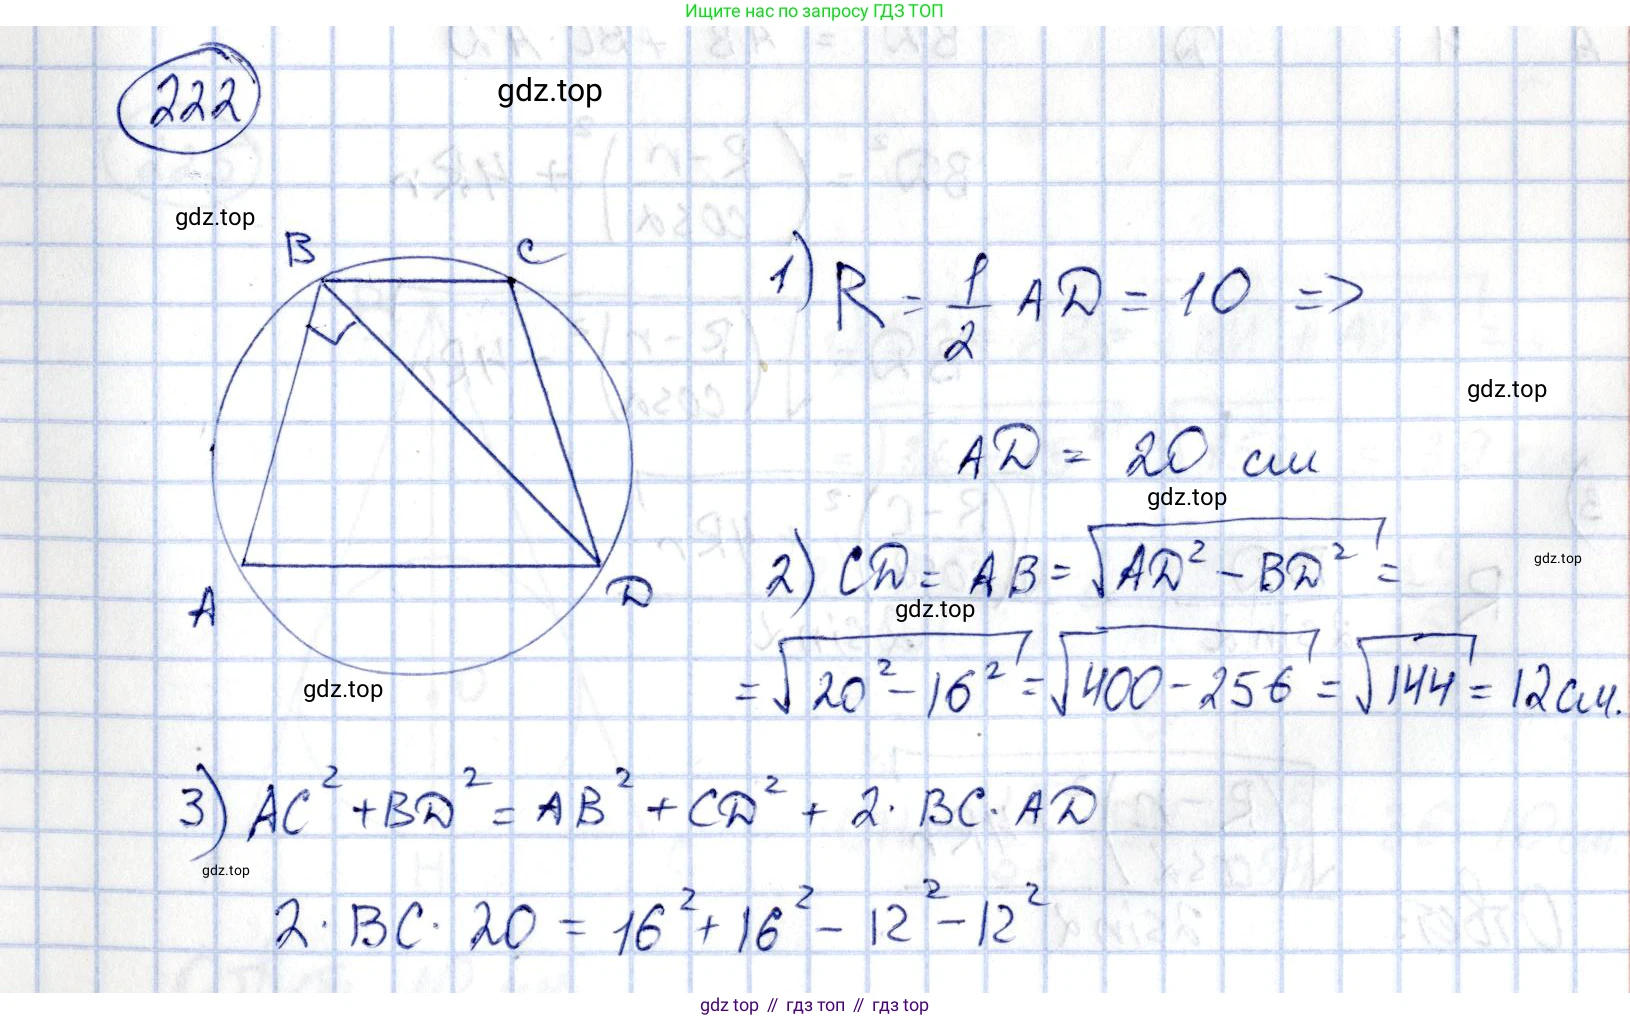 Ищите нас по запросу ГДЗ ТОП
222
gdz.top
gdz.top
B C
1) R = 1/2 AD = 10 =>
gdz.top
AD = 20 см
gdz.top
2) CD = AB = √(AD² - BD²) =
gdz.top
gdz.top
A D
= √(20² - 16²) = √(400 - 256) = √144 = 12 см.
gdz.top
3) AC² + BD² = AB² + CD² + 2 · BC · AD
gdz.top
2 · BC · 20 = 16² + 16² - 12² - 12²
gdz top // гдз топ // гдз top